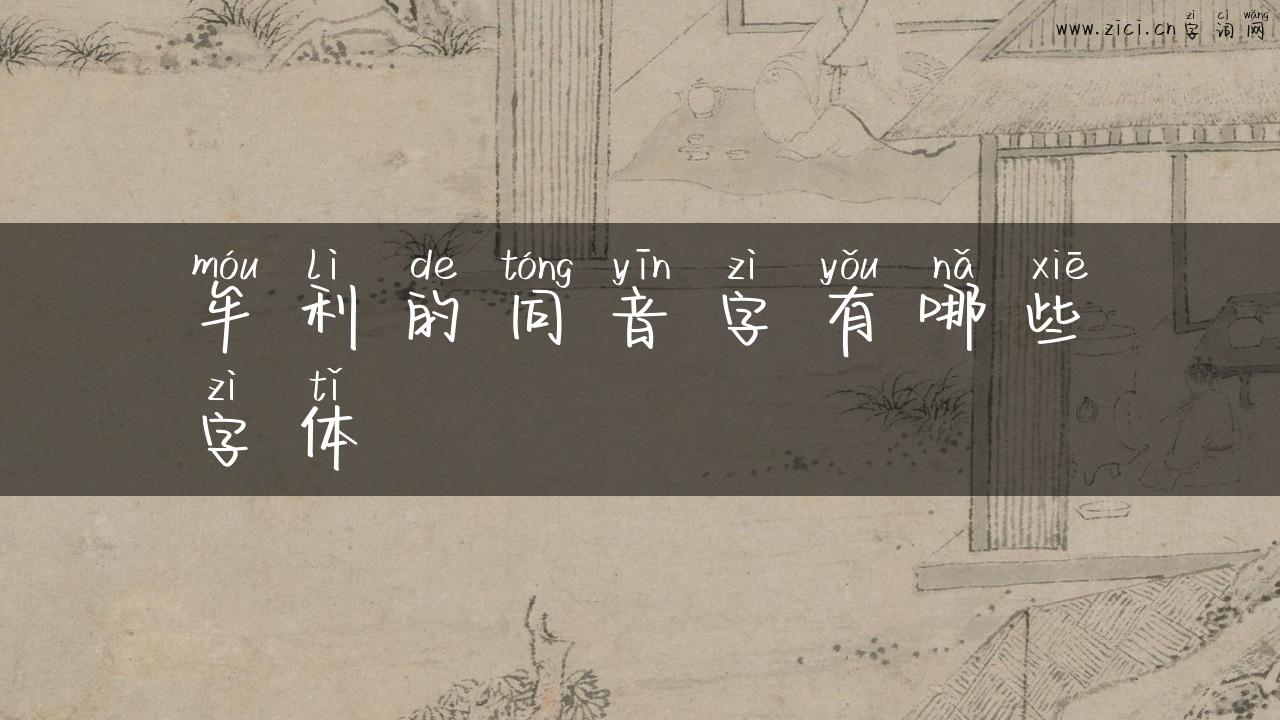 zì cí wǎng
www.zici.cn 字词网
móu lì de tóng yīn zì yǒu nǎ xiē
牟利的同音字有哪些
zì tǐ
字体